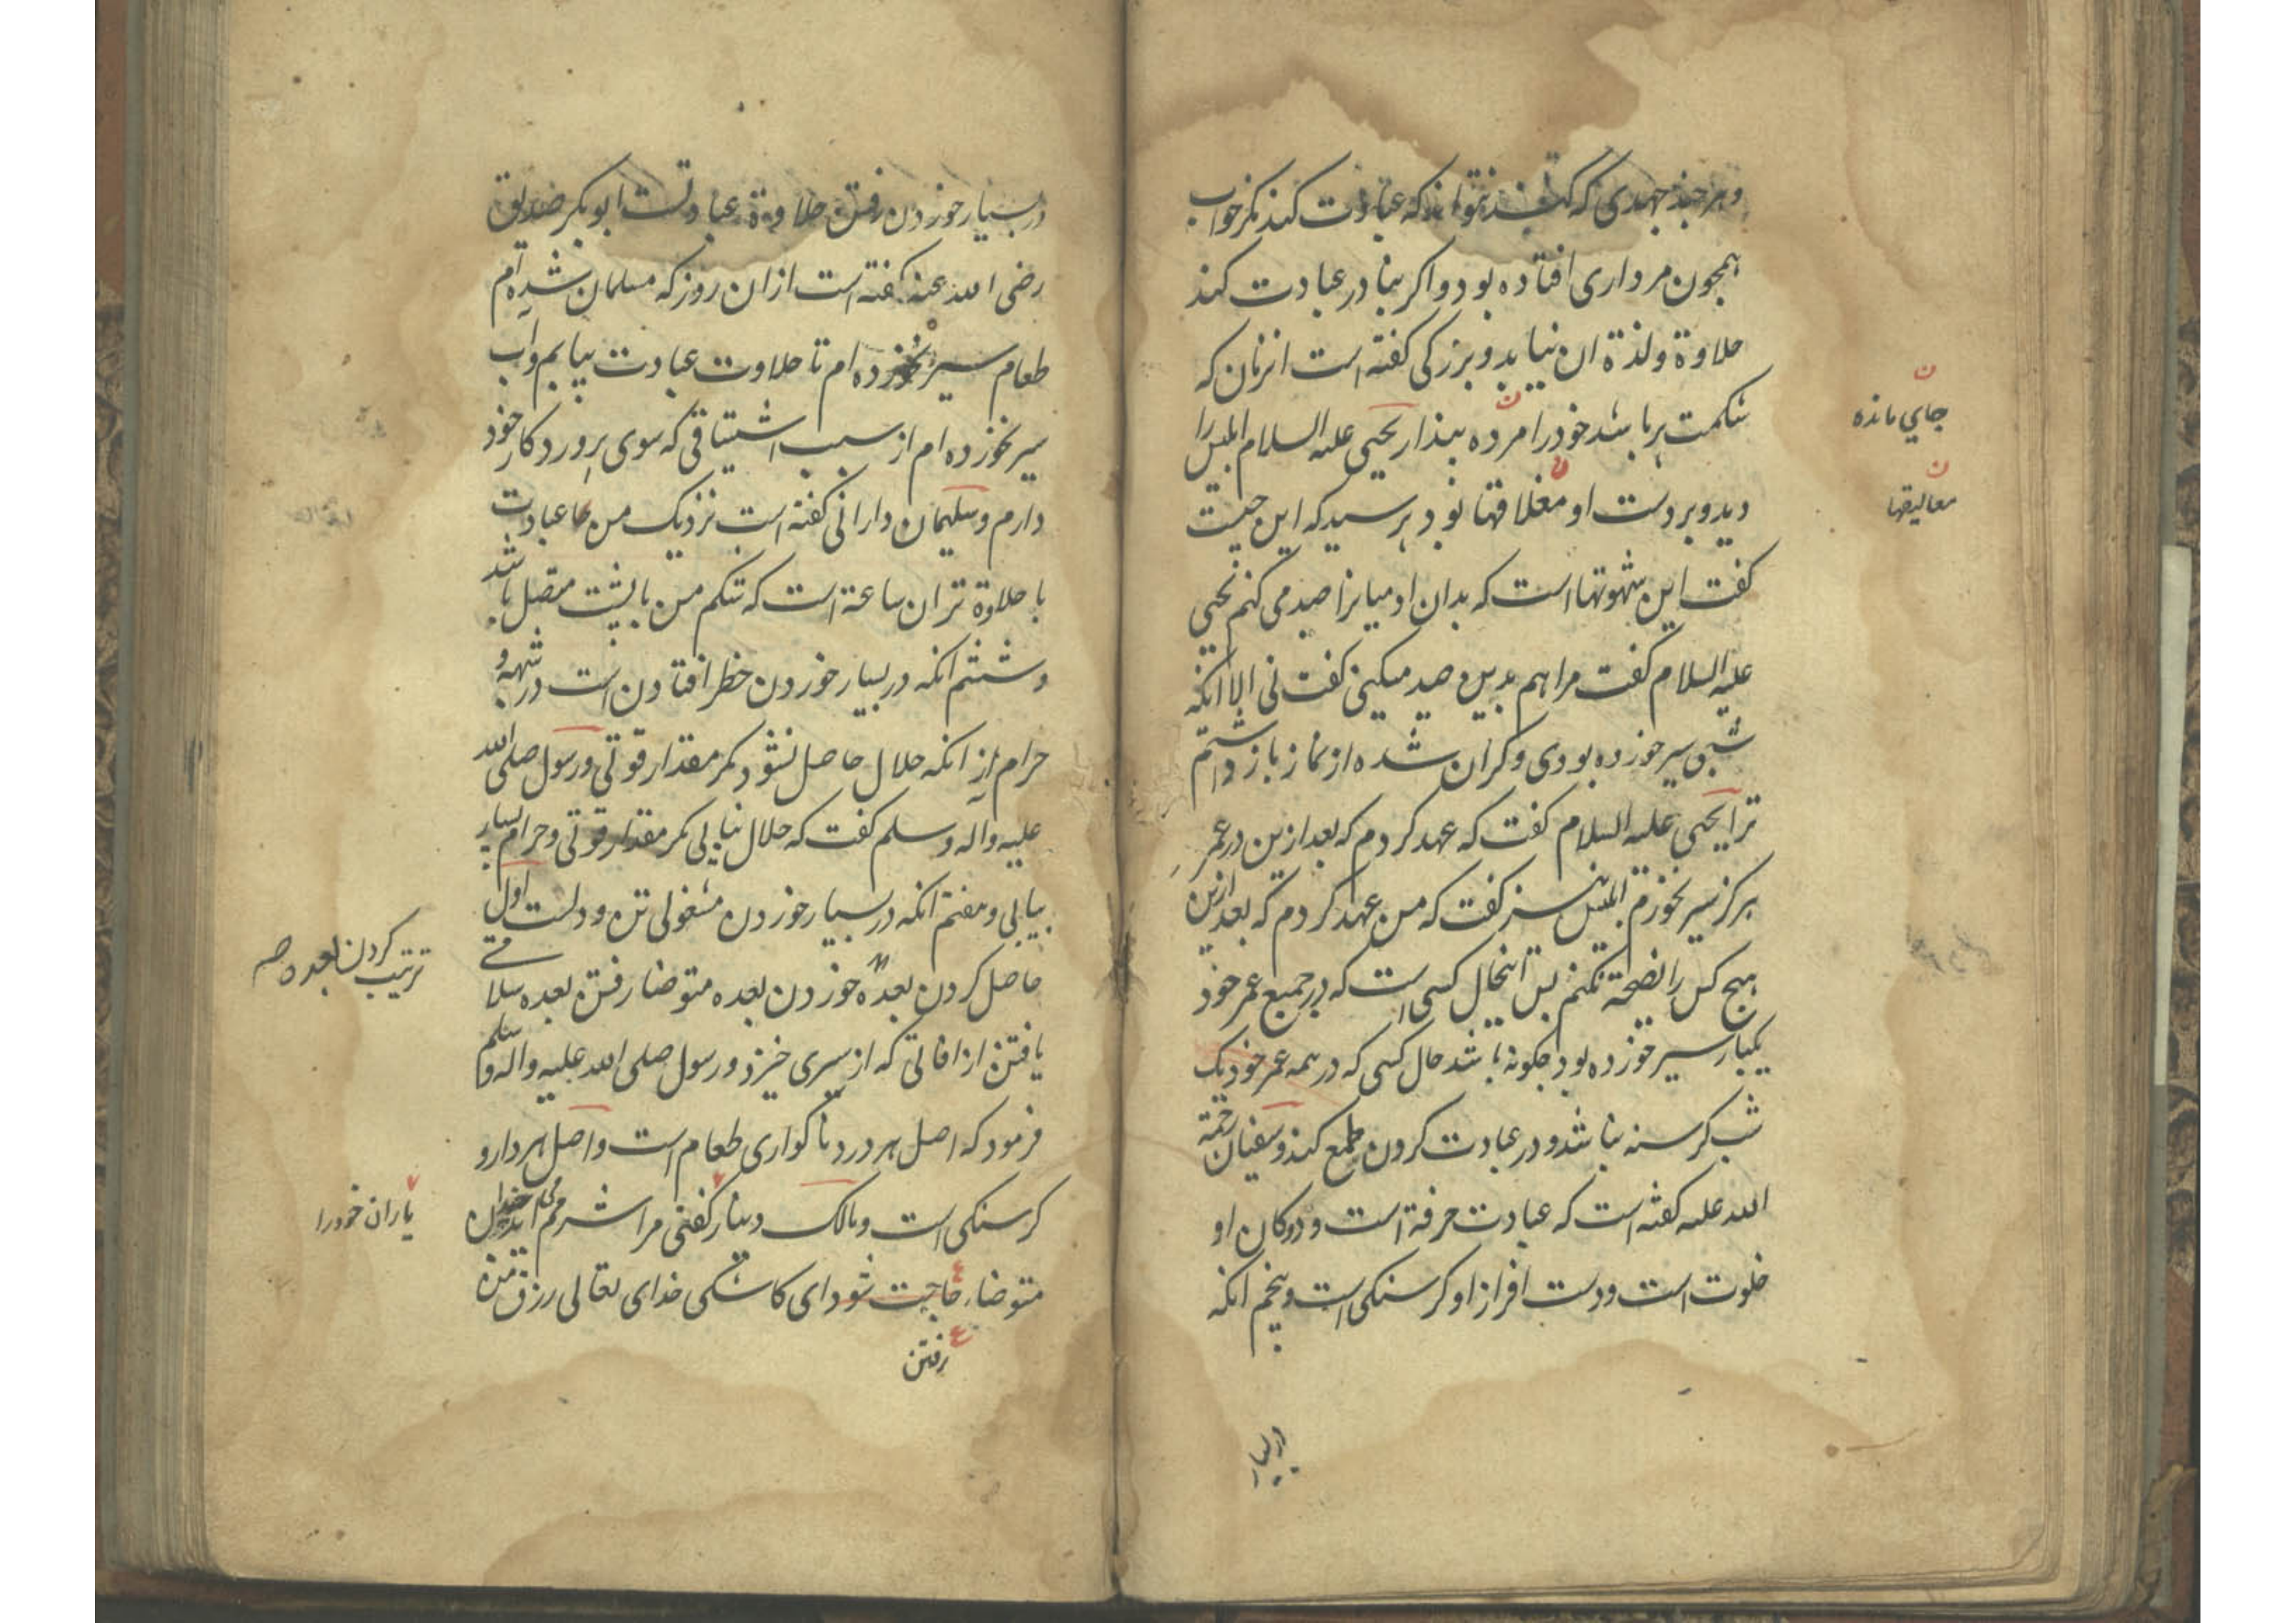 و هر چند جهدی که کند نتواند که عبادت کند مکر خواب
همچون مرداری افتاده بود و اکر بنا در عبادت کند
حلاوة و لذة ان نیابد و بزرکی کفته است انزمان که
شکمت پر باشد خود را مرده پندار یحیی علیه السلام ابلیس را
دید و بر دست او مغلاقها بود پرسید که این چیست
کفت این شهوتها است که بدان ادمیانرا صید می کنم یحیی
علیه السلام کفت مرا هم بدین صید میکنی کفت نی الا انکه
شبی سیر خورده بودی و کران شده از نماز باز داشتم
ترا یحیی علیه السلام کفت که عهد کردم که بعد ازین در عمر
هرکز سیر نخورم ابلیس نیز کفت که من عهد کردم که بعد ازین
هیچ کس را نصیحة نکنم پس اینحال کسی است که در جمیع عمر خود
یکبار سیر خورده بود چکونه باشد حال کسی که در همه عمر خود یک
شب کرسنه نباشد و در عبادت کردن طمع کند و سفیان رحمة
الله علیه کفته است که عبادت حرفة است و دوکان او
خلوت است و دست افزار او کرسنکی است و پنجم انکه
در بسیار
جای مانده
معالیقها
در بسیار خوردن رفتن حلاوة عبادتست ابوبکر صدیق
رضی الله عنه کفته است ازان روز که مسلمان شده ام
طعام سیر نخورده ام تا حلاوت عبادت بیابم و اب
سیر نخورده ام از سبب اشتیاقی که سوی پروردکار خود
دارم و سلیمان دارانی کفته است نزدیک من عبادت
با حلاوة تر ان ساعة است که شکم من با پشت متصل باشد
و ششم انکه در بسیار خوردن خطر افتادن است در شبهه و
حرام از انکه حلال حاصل نشود مکر مقدار قوتی و رسول صلی الله
علیه و اله و سلم کفت که حلال نیابی مکر مقدار قوتی و حرام بسیار
بیابی و هفتم انکه در بسیار خوردن مشغولی تن و دلست اول
حاصل کردن بعده خوردن بعده متوضا رفتن بعده سلامتی
یافتن از افاتی که از سیری خیزد و رسول صلی الله علیه و اله و سلم
فرمود که اصل هر درد ناکواری طعام است و اصل هر دارو
کرسنکی است و مالک دینار کفتی مرا شرم می اید از
متوضاء حاجت شود ای کاشکی خدای تعالی رزق من
رفتن
ترتیب کردن بعده
یاران خود را